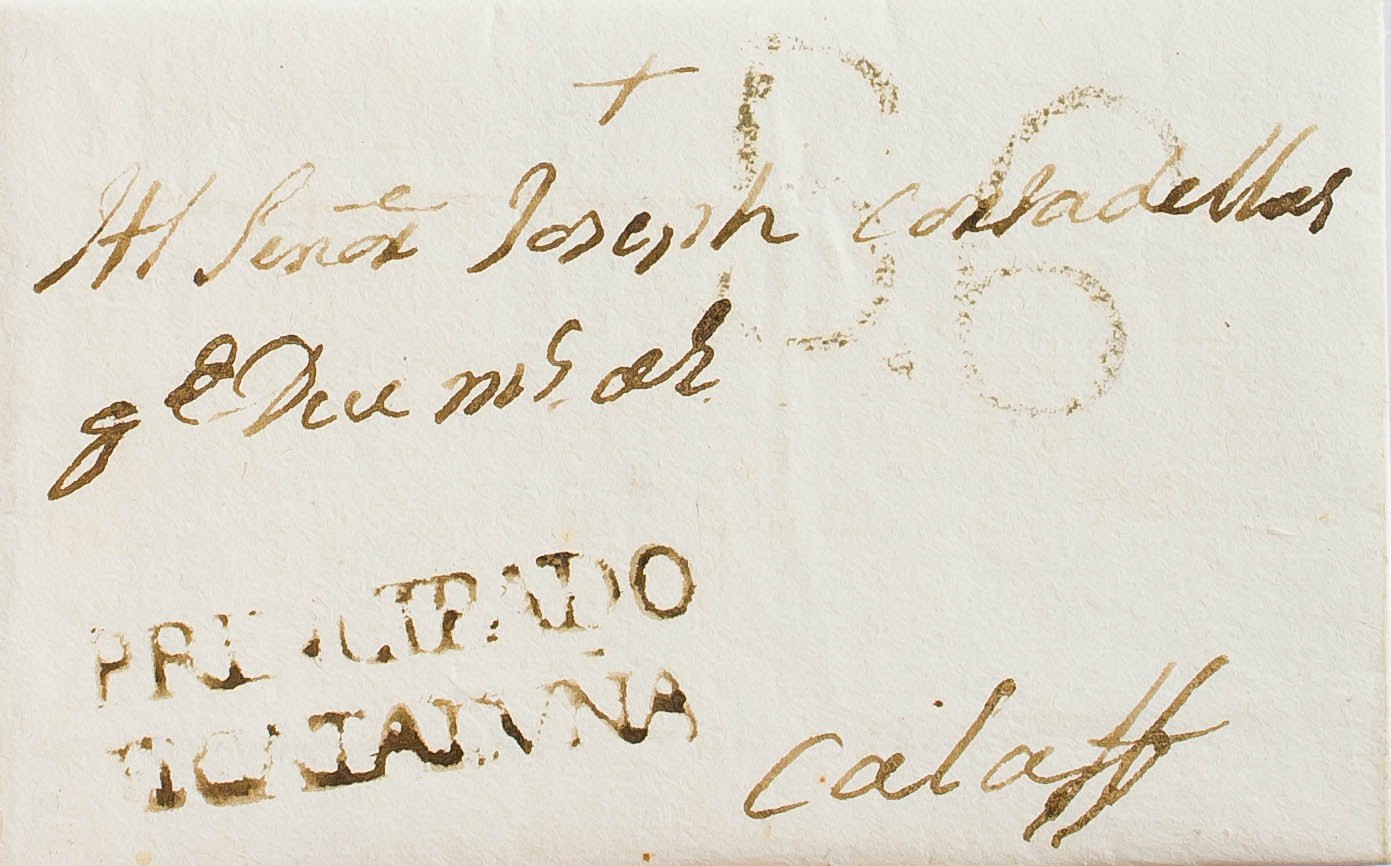 Al Señor Joseph cortadellas
g.e Dieu m.s a.s
PRINCIPADO
CATALVÑA
Calaff